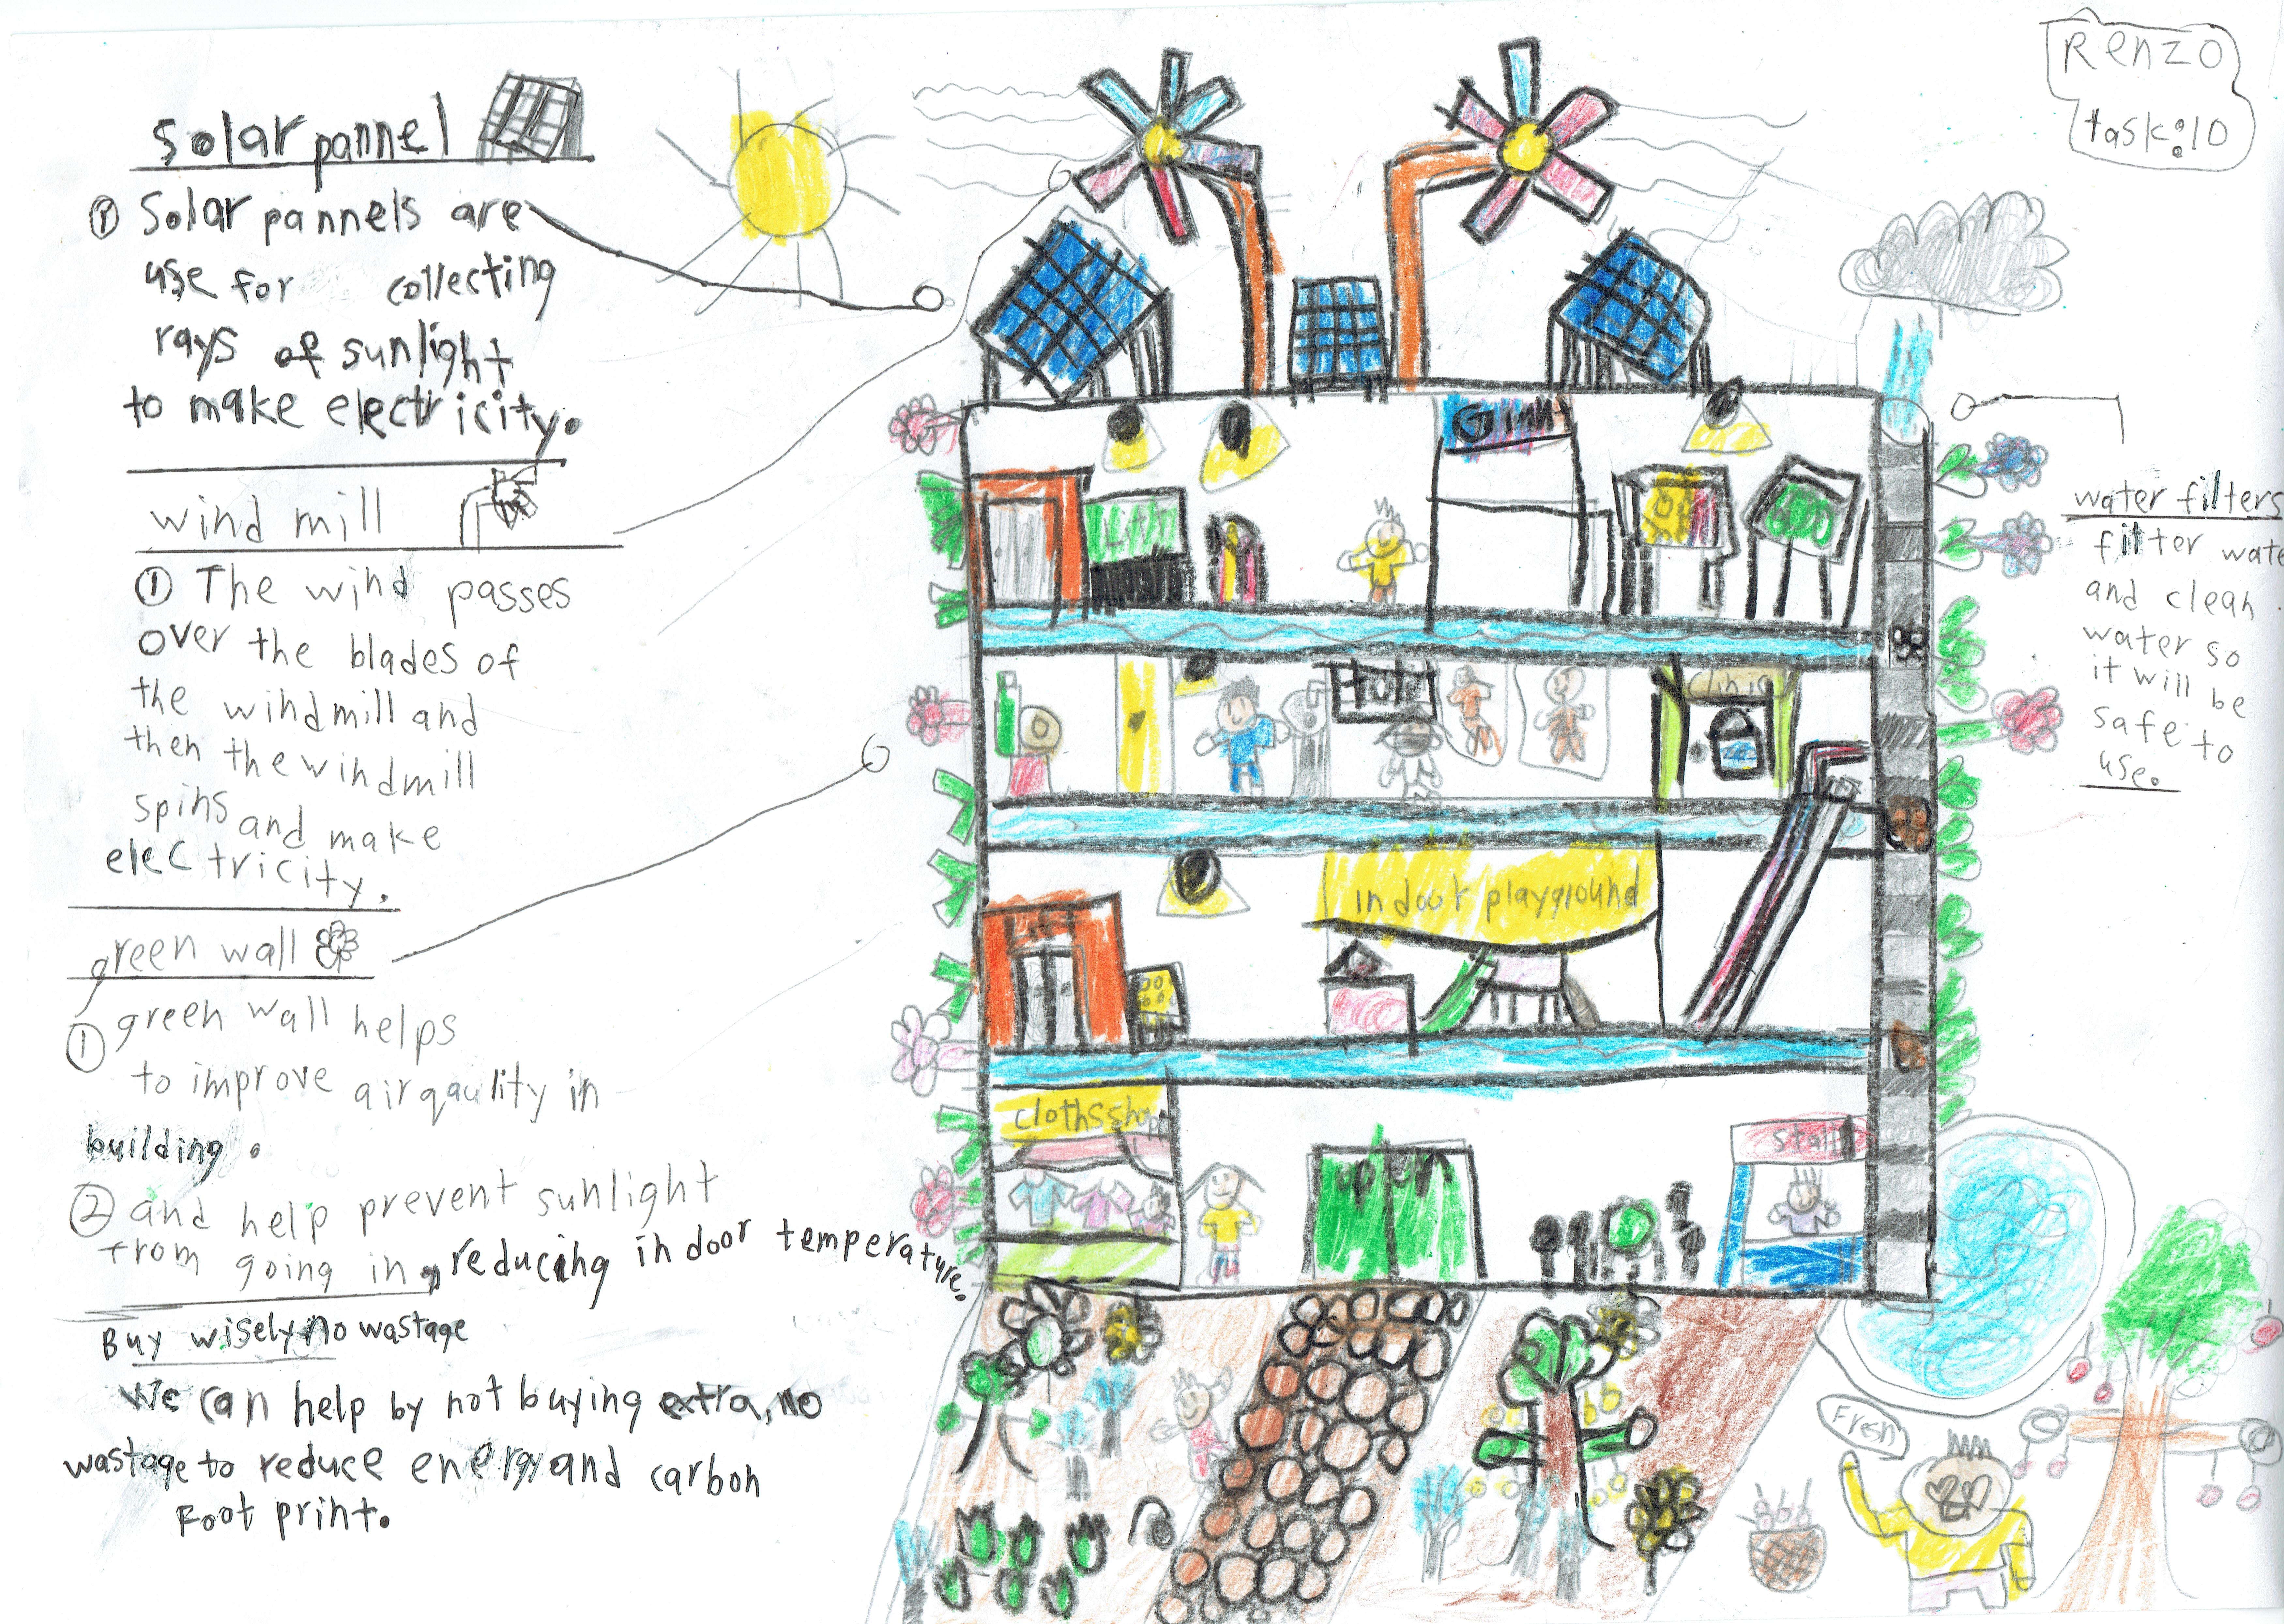 Renzo
task:10
solar pannel
① Solar pannels are
use for collecting
rays of sunlight
to make electricity.
wind mill
① The wind passes
over the blades of
the windmill and
then the windmill
spins and make
electricity.
green wall
① green wall helps
to improve air qaulity in
building.
② and help prevent sunlight
from going in, reducing indoor temperature.
Buy wisely no wastage
We can help by not buying extra, no
wastage to reduce energy and carbon
Foot print.
water filters
filter wate
and clean
water so
it will be
safe to
use.
clinic
indoor playground
cloths shop
stall